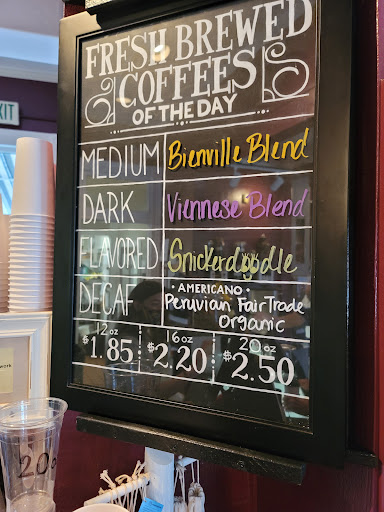 EXIT
FRESH BREWED
COFFEES
OF THE DAY
MEDIUM Bienville Blend
DARK Viennese Blend
FLAVORED Snickerdoodle
DECAF • AMERICANO •
Peruvian Fair Trade
Organic
12oz 16oz 20oz
$1.85 $2.20 $2.50
20